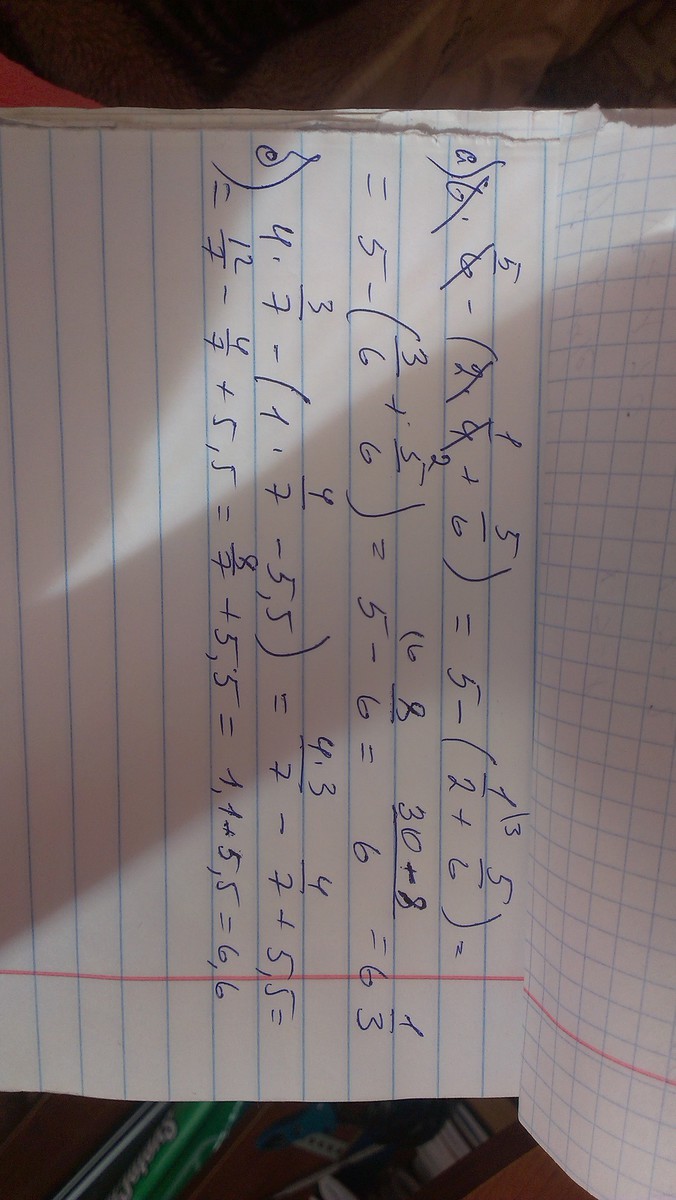 а) 6 · 5/6 - (2 · 1/4 + 5/6) = 5 - (1/2 \3 + 5/6) =
= 5 - (3/6 + 5/6) = 5 - 8/6 = 30 + 8/6 = 6 1/3
б) 4 · 3/7 - (1 · 4/7 - 5,5) = 4·3/7 - 4/7 + 5,5 =
= 12/7 - 4/7 + 5,5 = 8/7 + 5,5 = 1,1 + 5,5 = 6,6